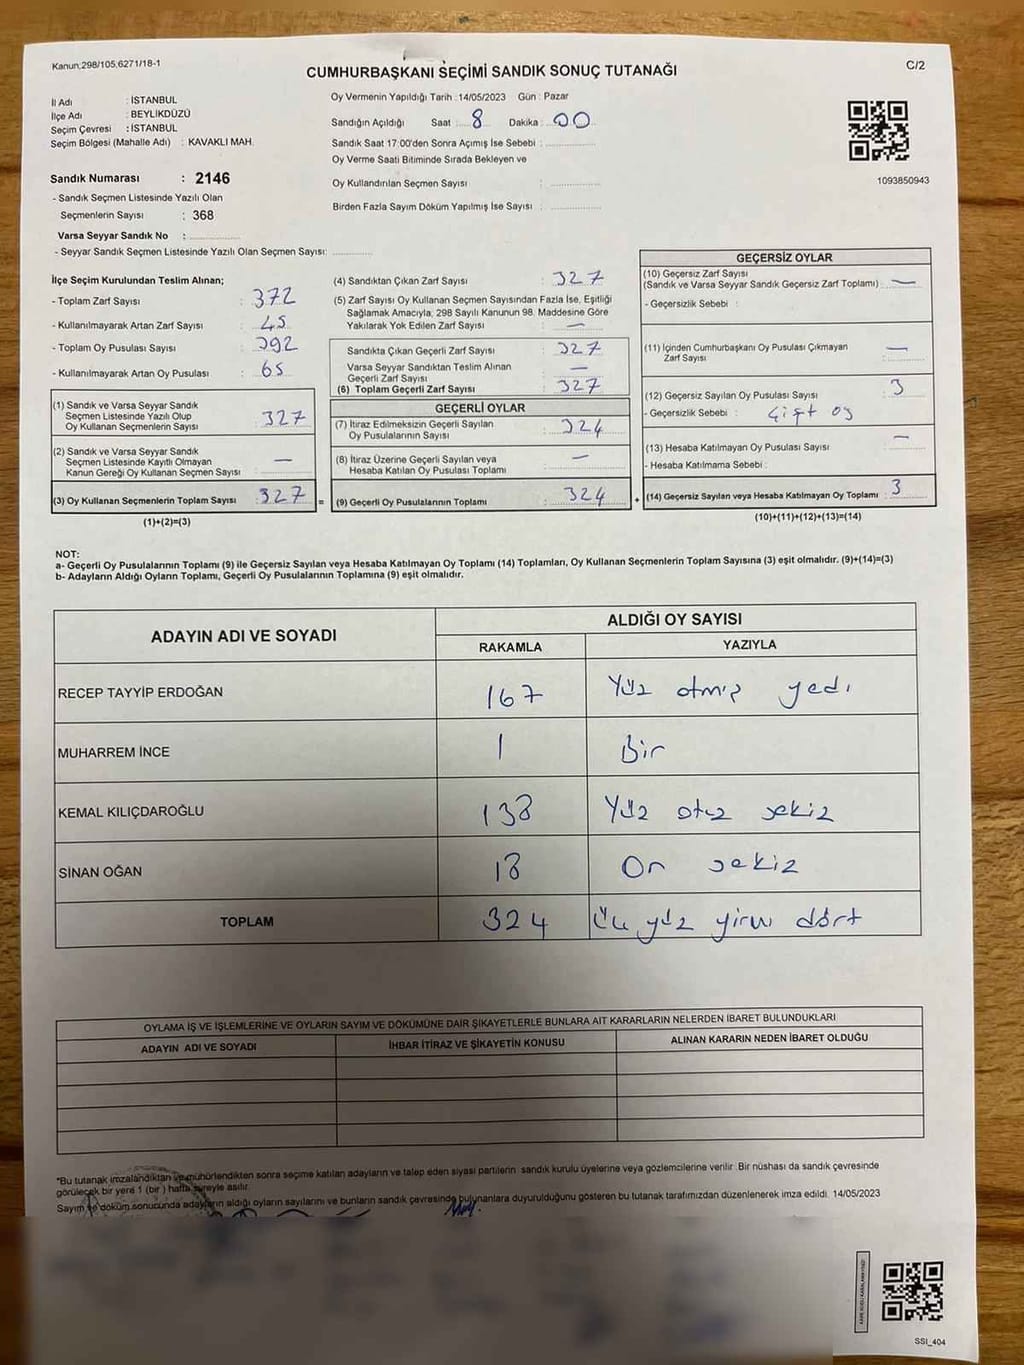 Kanun.298/105,6271/18-1
CUMHURBAŞKANI SEÇİMİ SANDIK SONUÇ TUTANAĞI
C/2
İl Adı : İSTANBUL
İlçe Adı : BEYLİKDÜZÜ
Seçim Çevresi : İSTANBUL
Seçim Bölgesi (Mahalle Adı) : KAVAKLI MAH.
Oy Vermenin Yapıldığı Tarih :14/05/2023 Gün : Pazar
Sandığın Açıldığı Saat : 8 Dakika : 00
Sandık Saat 17:00'den Sonra Açımış İse Sebebi :
Oy Verme Saati Bitiminde Sırada Bekleyen ve
Oy Kullandırılan Seçmen Sayısı :
Birden Fazla Sayım Döküm Yapılmış İse Sayısı :
1093850943
Sandık Numarası : 2146
- Sandık Seçmen Listesinde Yazılı Olan
Seçmenlerin Sayısı : 368
Varsa Seyyar Sandık No :
- Seyyar Sandık Seçmen Listesinde Yazılı Olan Seçmen Sayısı:
İlçe Seçim Kurulundan Teslim Alınan;
- Toplam Zarf Sayısı : 372
- Kullanılmayarak Artan Zarf Sayısı : 45
- Toplam Oy Pusulası Sayısı : 392
- Kullanılmayarak Artan Oy Pusulası : 65
(1) Sandık ve Varsa Seyyar Sandık
Seçmen Listesinde Yazılı Olup
Oy Kullanan Seçmenlerin Sayısı : 327
(2) Sandık ve Varsa Seyyar Sandık
Seçmen Listesinde Kayıtlı Olmayan
Kanun Gereği Oy Kullanan Seçmen Sayısı : —
(3) Oy Kullanan Seçmenlerin Toplam Sayısı : 327 =
(1)+(2)=(3)
(4) Sandıktan Çıkan Zarf Sayısı : 327
(5) Zarf Sayısı Oy Kullanan Seçmen Sayısından Fazla İse, Eşitliği
Sağlamak Amacıyla, 298 Sayılı Kanunun 98. Maddesine Göre
Yakılarak Yok Edilen Zarf Sayısı : —
Sandıkta Çıkan Geçerli Zarf Sayısı : 327
Varsa Seyyar Sandıktan Teslim Alınan
Geçerli Zarf Sayısı : —
(6) Toplam Geçerli Zarf Sayısı : 327
GEÇERLİ OYLAR
(7) İtiraz Edilmeksizin Geçerli Sayılan
Oy Pusulalarının Sayısı : 324
(8) İtiraz Üzerine Geçerli Sayılan veya
Hesaba Katılan Oy Pusulası Toplamı : —
(9) Geçerli Oy Pusulalarının Toplamı : 324 +
GEÇERSİZ OYLAR
(10) Geçersiz Zarf Sayısı
(Sandık ve Varsa Seyyar Sandık Geçersiz Zarf Toplamı) : —
- Geçersizlik Sebebi :
(11) İçinden Cumhurbaşkanı Oy Pusulası Çıkmayan
Zarf Sayısı : —
(12) Geçersiz Sayılan Oy Pusulası Sayısı : 3
- Geçersizlik Sebebi : Çift oy
(13) Hesaba Katılmayan Oy Pusulası Sayısı : —
- Hesaba Katılmama Sebebi :
(14) Geçersiz Sayılan veya Hesaba Katılmayan Oy Toplamı : 3
(10)+(11)+(12)+(13)=(14)
NOT:
a- Geçerli Oy Pusulalarının Toplamı (9) ile Geçersiz Sayılan veya Hesaba Katılmayan Oy Toplamı (14) Toplamları, Oy Kullanan Seçmenlerin Toplam Sayısına (3) eşit olmalıdır. (9)+(14)=(3)
b- Adayların Aldığı Oyların Toplamı, Geçerli Oy Pusulalarının Toplamına (9) eşit olmalıdır.
ADAYIN ADI VE SOYADI ALDIĞI OY SAYISI
RAKAMLA YAZIYLA
RECEP TAYYİP ERDOĞAN 167 Yüz atmış yedi
MUHARREM İNCE 1 Bir
KEMAL KILIÇDAROĞLU 138 Yüz otuz sekiz
SİNAN OĞAN 18 On sekiz
TOPLAM 324 Üç yüz yirmi dört
OYLAMA İŞ VE İŞLEMLERİNE VE OYLARIN SAYIM VE DÖKÜMÜNE DAİR ŞİKAYETLERLE BUNLARA AİT KARARLARIN NELERDEN İBARET BULUNDUKLARI
ADAYIN ADI VE SOYADI İHBAR İTİRAZ VE ŞİKAYETİN KONUSU ALINAN KARARIN NEDEN İBARET OLDUĞU
*Bu tutanak imzalandıktan ve mühürlendikten sonra seçime katılan adayların ve talep eden siyasi partilerin sandık kurulu üyelerine veya gözlemcilerine verilir. Bir nüshası da sandık çevresinde
görülecek bir yere 1 (bir) hafta süreyle asılır.
Sayım ve döküm sonucunda adayların aldığı oyların sayılarını ve bunların sandık çevresinde bulunanlara duyurulduğunu gösteren bu tutanak tarafımızdan düzenlenerek imza edildi. 14/05/2023
SSI_404